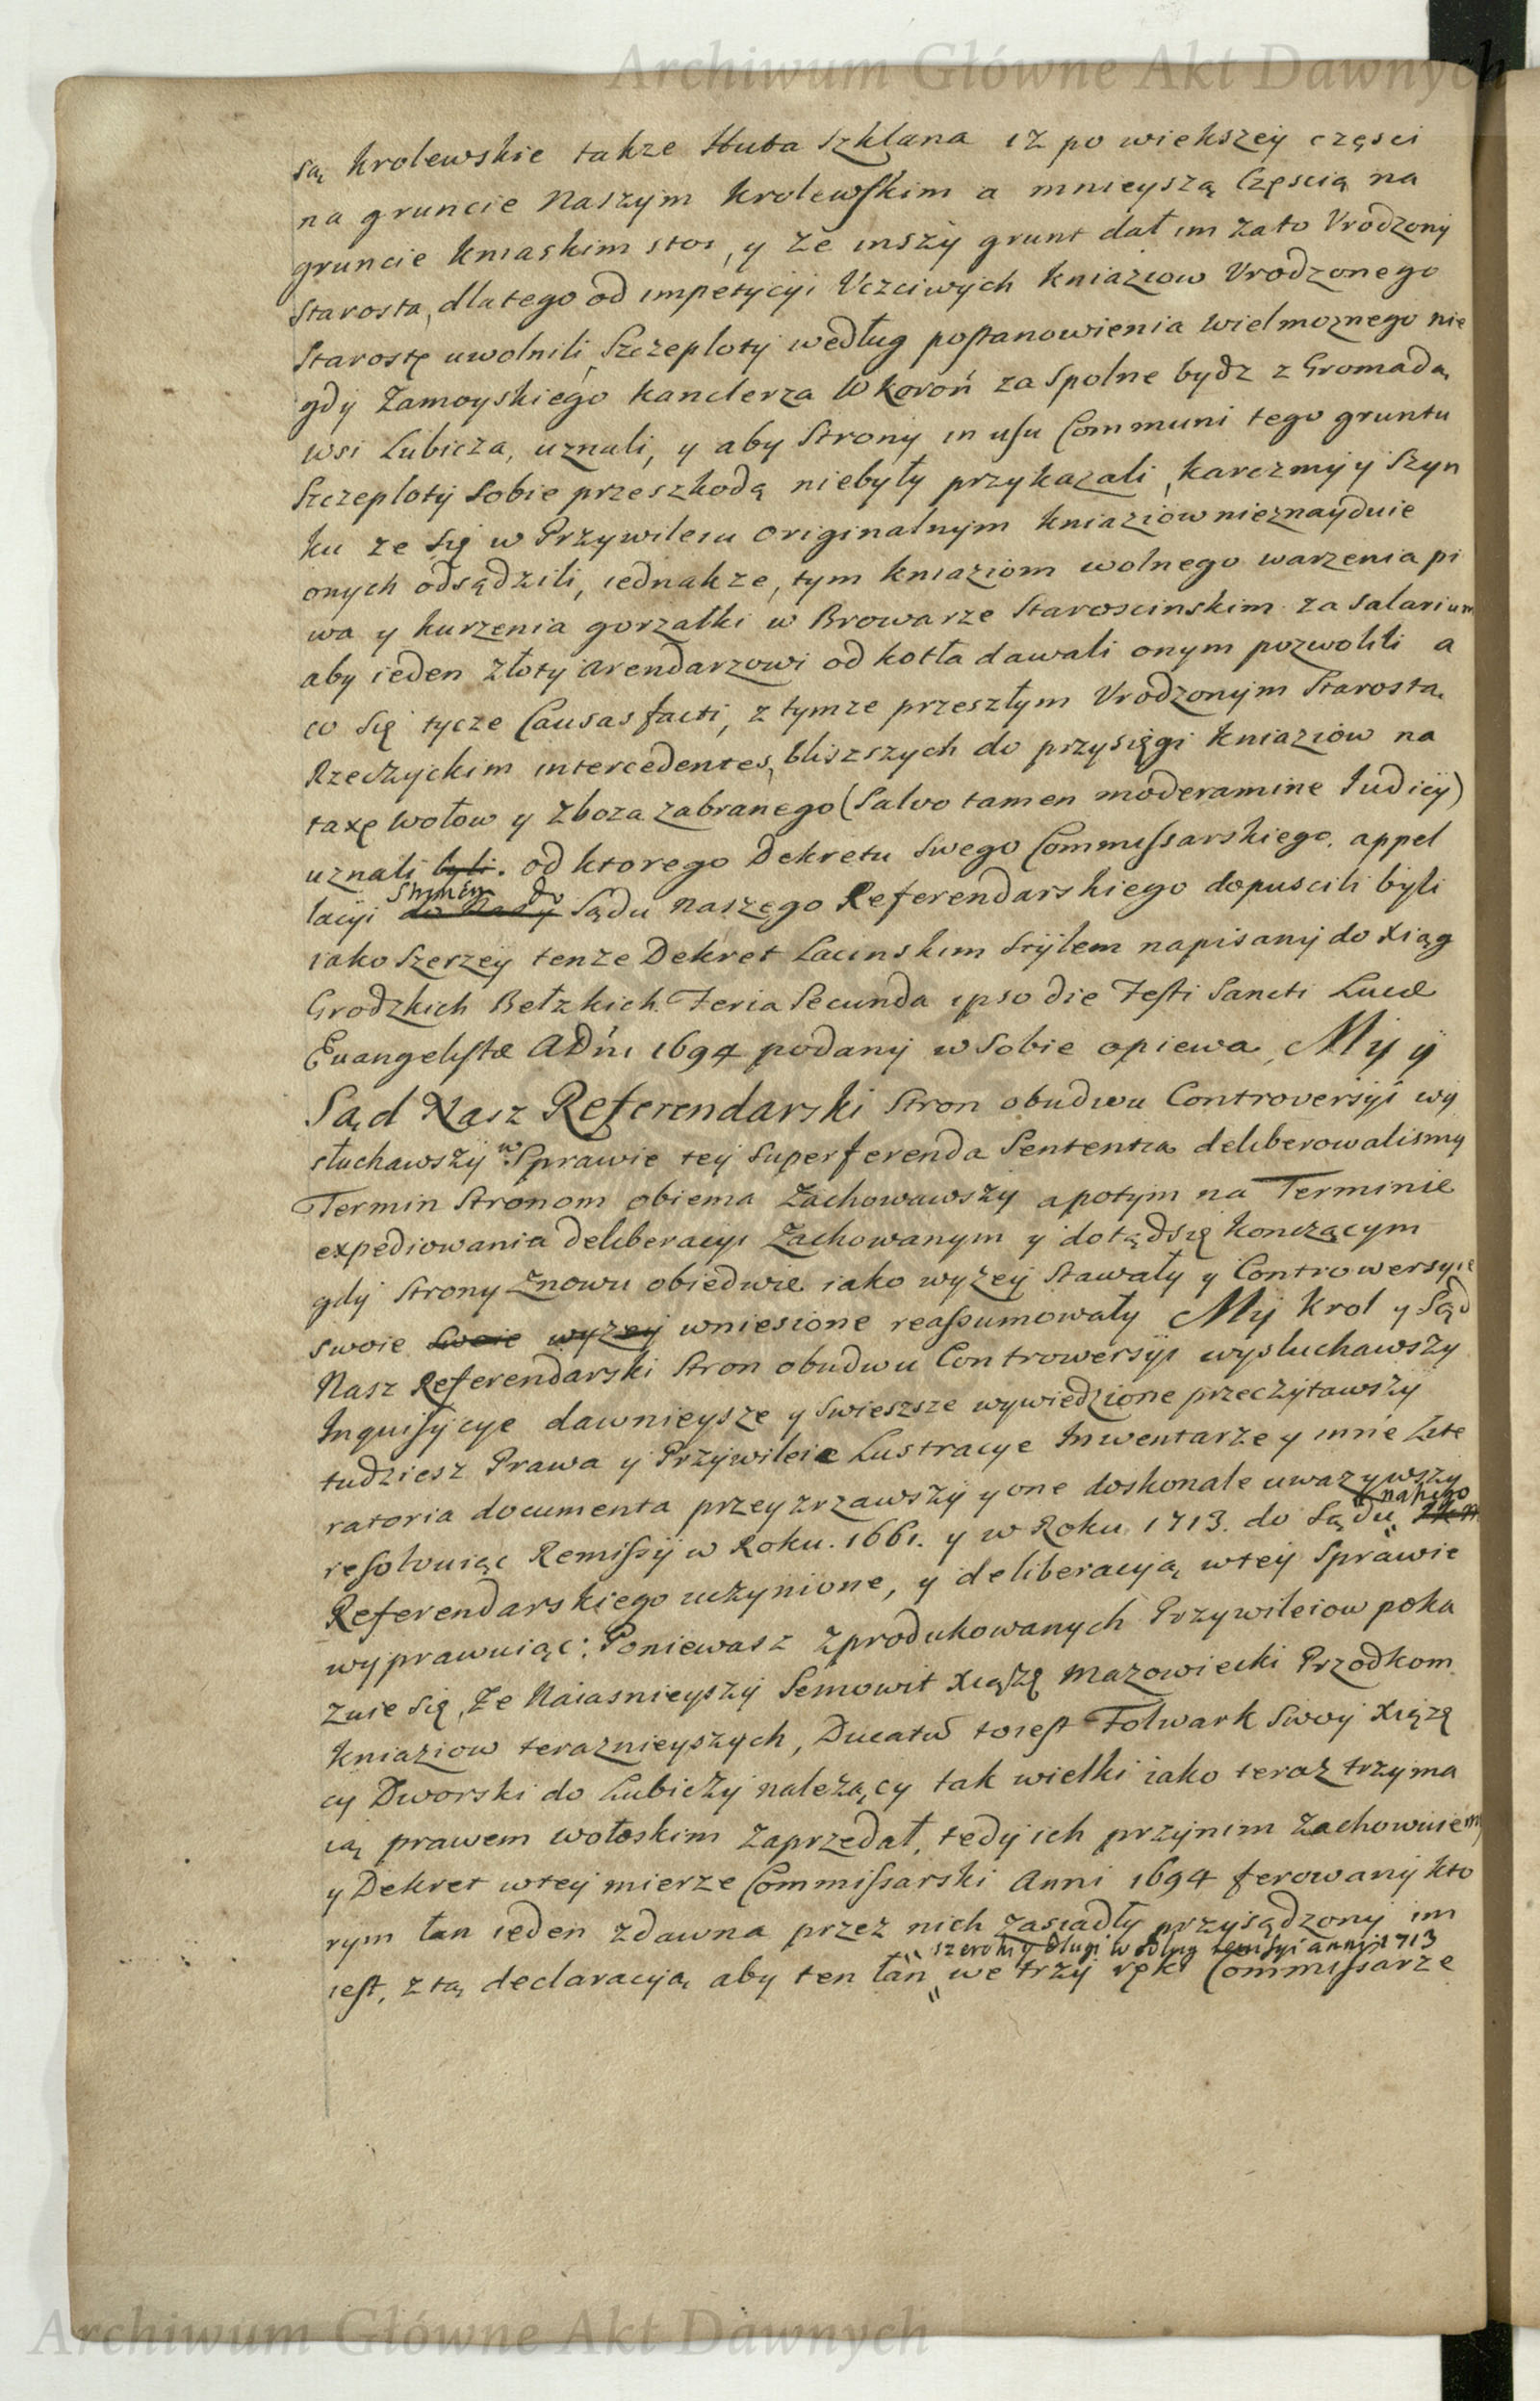 Archiwum Główne Akt Dawnych
są Krolewskie takze Huta Szklana iz po wiekszey częsci
na gruncie Naszym Krolewskim a mnieyszą Częscią na
gruncie Kniaskim stoi, y ze inszy grunt dał im za to Vrodzony
Starosta, dlatego od impetycyi Vczciwych Kniaziow Vrodzonego
Starostę uwolnili, Szczeploty według postanowienia Wielmoznego nie
gdy Zamoyskiego Kanclerza W Koroń za Spolne bydz z Gromadą
wsi Lubicza, uznali, y aby Strony in usu Communi tego gruntu
Szczeploty Sobie przeszkodą niebyły przykazali, Karczmy y Szyn
ku ze Się w Przywileiu Originalnym Kniaziow nieznayduie
onych odsądzili, iednakze, tym Kniaziom wolnego warzenia pi
wa y kurzenia gorzałki w Browarze Staroscinskim za Salarium
aby ieden złoty arendarzowi od kotła dawali onym pozwolili a
co Się tycze Causas facti, z tymze przeszłym Vrodzonym Starostą
Rzeczyckim intercedentes, bliszszych do przysięgi Kniaziow na
taxę Wołow y Zboza zabranego (Salvo tamen moderamine Iudicij)
uznali byli. od ktorego Dekretu Swego Commissarskiego, appel
lacyi do Sądu naszego Referendarskiego dopuscili byli
iako Szerzey tenze Dekret Łacinskim Stylem napisany do Xiąg
Grodzkich Bełzkich Feria Secunda ipso die Festi Sancti Lucæ
Euangelistæ ADni 1694 podany w Sobie opiewa, My y
Sąd Nasz Referendarski Stron obudwu Controversyi wy
słuchawszy w Sprawie tey Superferenda Sententia deliberowalismy
Termin Stronom obiema Zachowawszy apotym na Terminie
expediowania deliberacyi Zachowanym y dotądsię Konczącym
gdy Strony Znowu obiedwie iako wyzey Stawały y Controwersyie
swoie swoie wyzey wniesione reassumowały My Krol y Sąd
Nasz Referendarski Stron obudwu Controwersyi wysłuchawszy
Inquisycye dawnieysze y Swieszsze wywiedzione przeczytawszy
tudziesz Prawa y Przywileie Lustracye Inwentarze y inne Lite
ratoria documenta przeyzrzawszy y one doskonale uwazywszy
resolvuiąc Remissy w Roku. 1661. y w Roku 1713. do Sądu
Referendarskiego uczynione, y deliberacyią wtey Sprawie
wyprawuiąc: Poniewasz Zprodukowanych Przywileiow poka
zuie się, Ze Naiasnieyszy Semowit Xiąszę Mazowiecki Przodkom
Kniaziow teraznieyszych, Ducatus toiest Folwark Swoy Xiązę
cy Dworski do Lubiczy nalezący tak wielki iako teraz trzyma
ią prawem wołoskim zaprzedał, tedy ich przynim zachowuiemy
y Dekret wtey mierze Commissarski Anni 1694 ferowany kto
rym łan ieden zdawna przez nich zasiadły przysądzony im
szeroki y długi według remissyi anni 1713
iest, z tą declaracyią aby ten łan we trzy Commissarze
Archiwum Główne Akt Dawnych